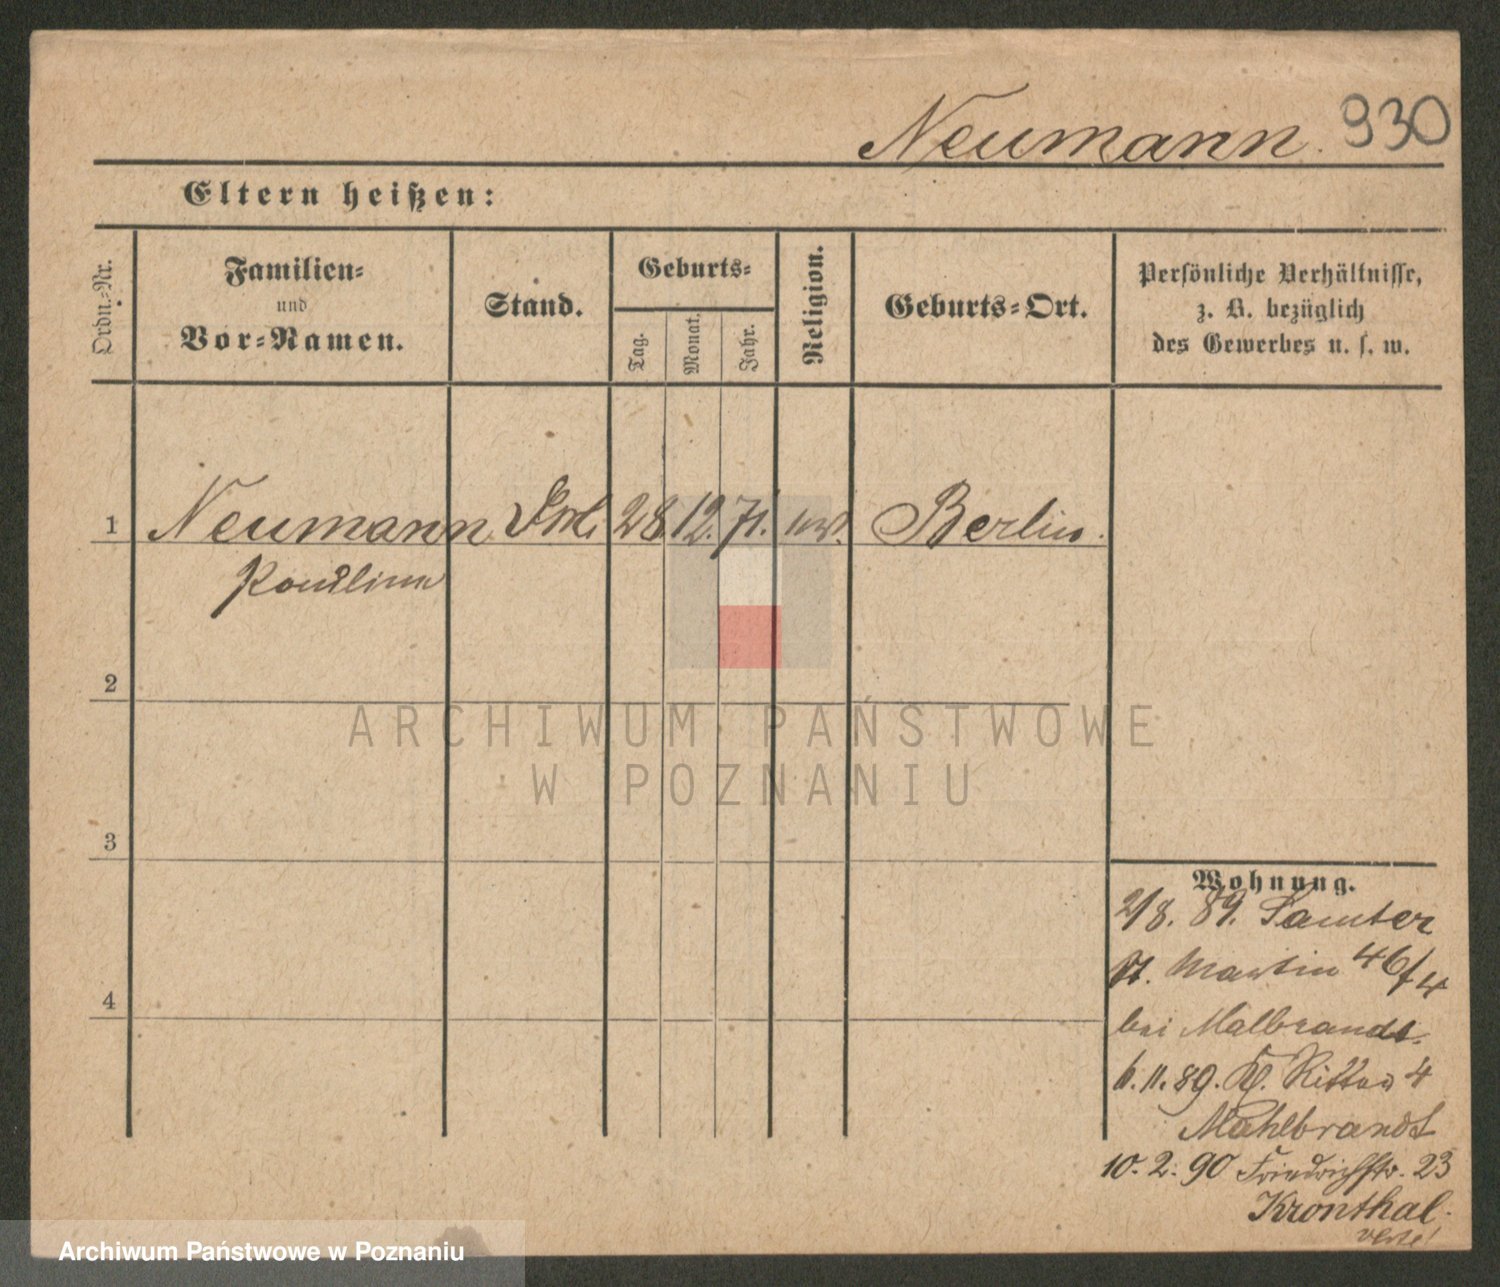 Neumann. 930
Eltern heißen:
Ordn.-Nr.
Familien-
und
Vor-Namen.
Stand.
Geburts-
Tag.
Monat.
Jahr.
Religion.
Geburts-Ort.
Persönliche Verhältnisse,
z. B. bezüglich
des Gewerbes u. s. w.
1 Neumann 28. 12. 71. Berlin.
Pauline
2
3
4
Wohnung.
2/8. 89. Samter
St. Martin 46/4
bei Malbrandt.
6.11.89. Kl. Ritter 4
Mahlbrandt
10. 2. 90 Friedrichstr. 23
Kronthal.
ARCHIWUM PAŃSTWOWE
W POZNANIU
Archiwum Państwowe w Poznaniu